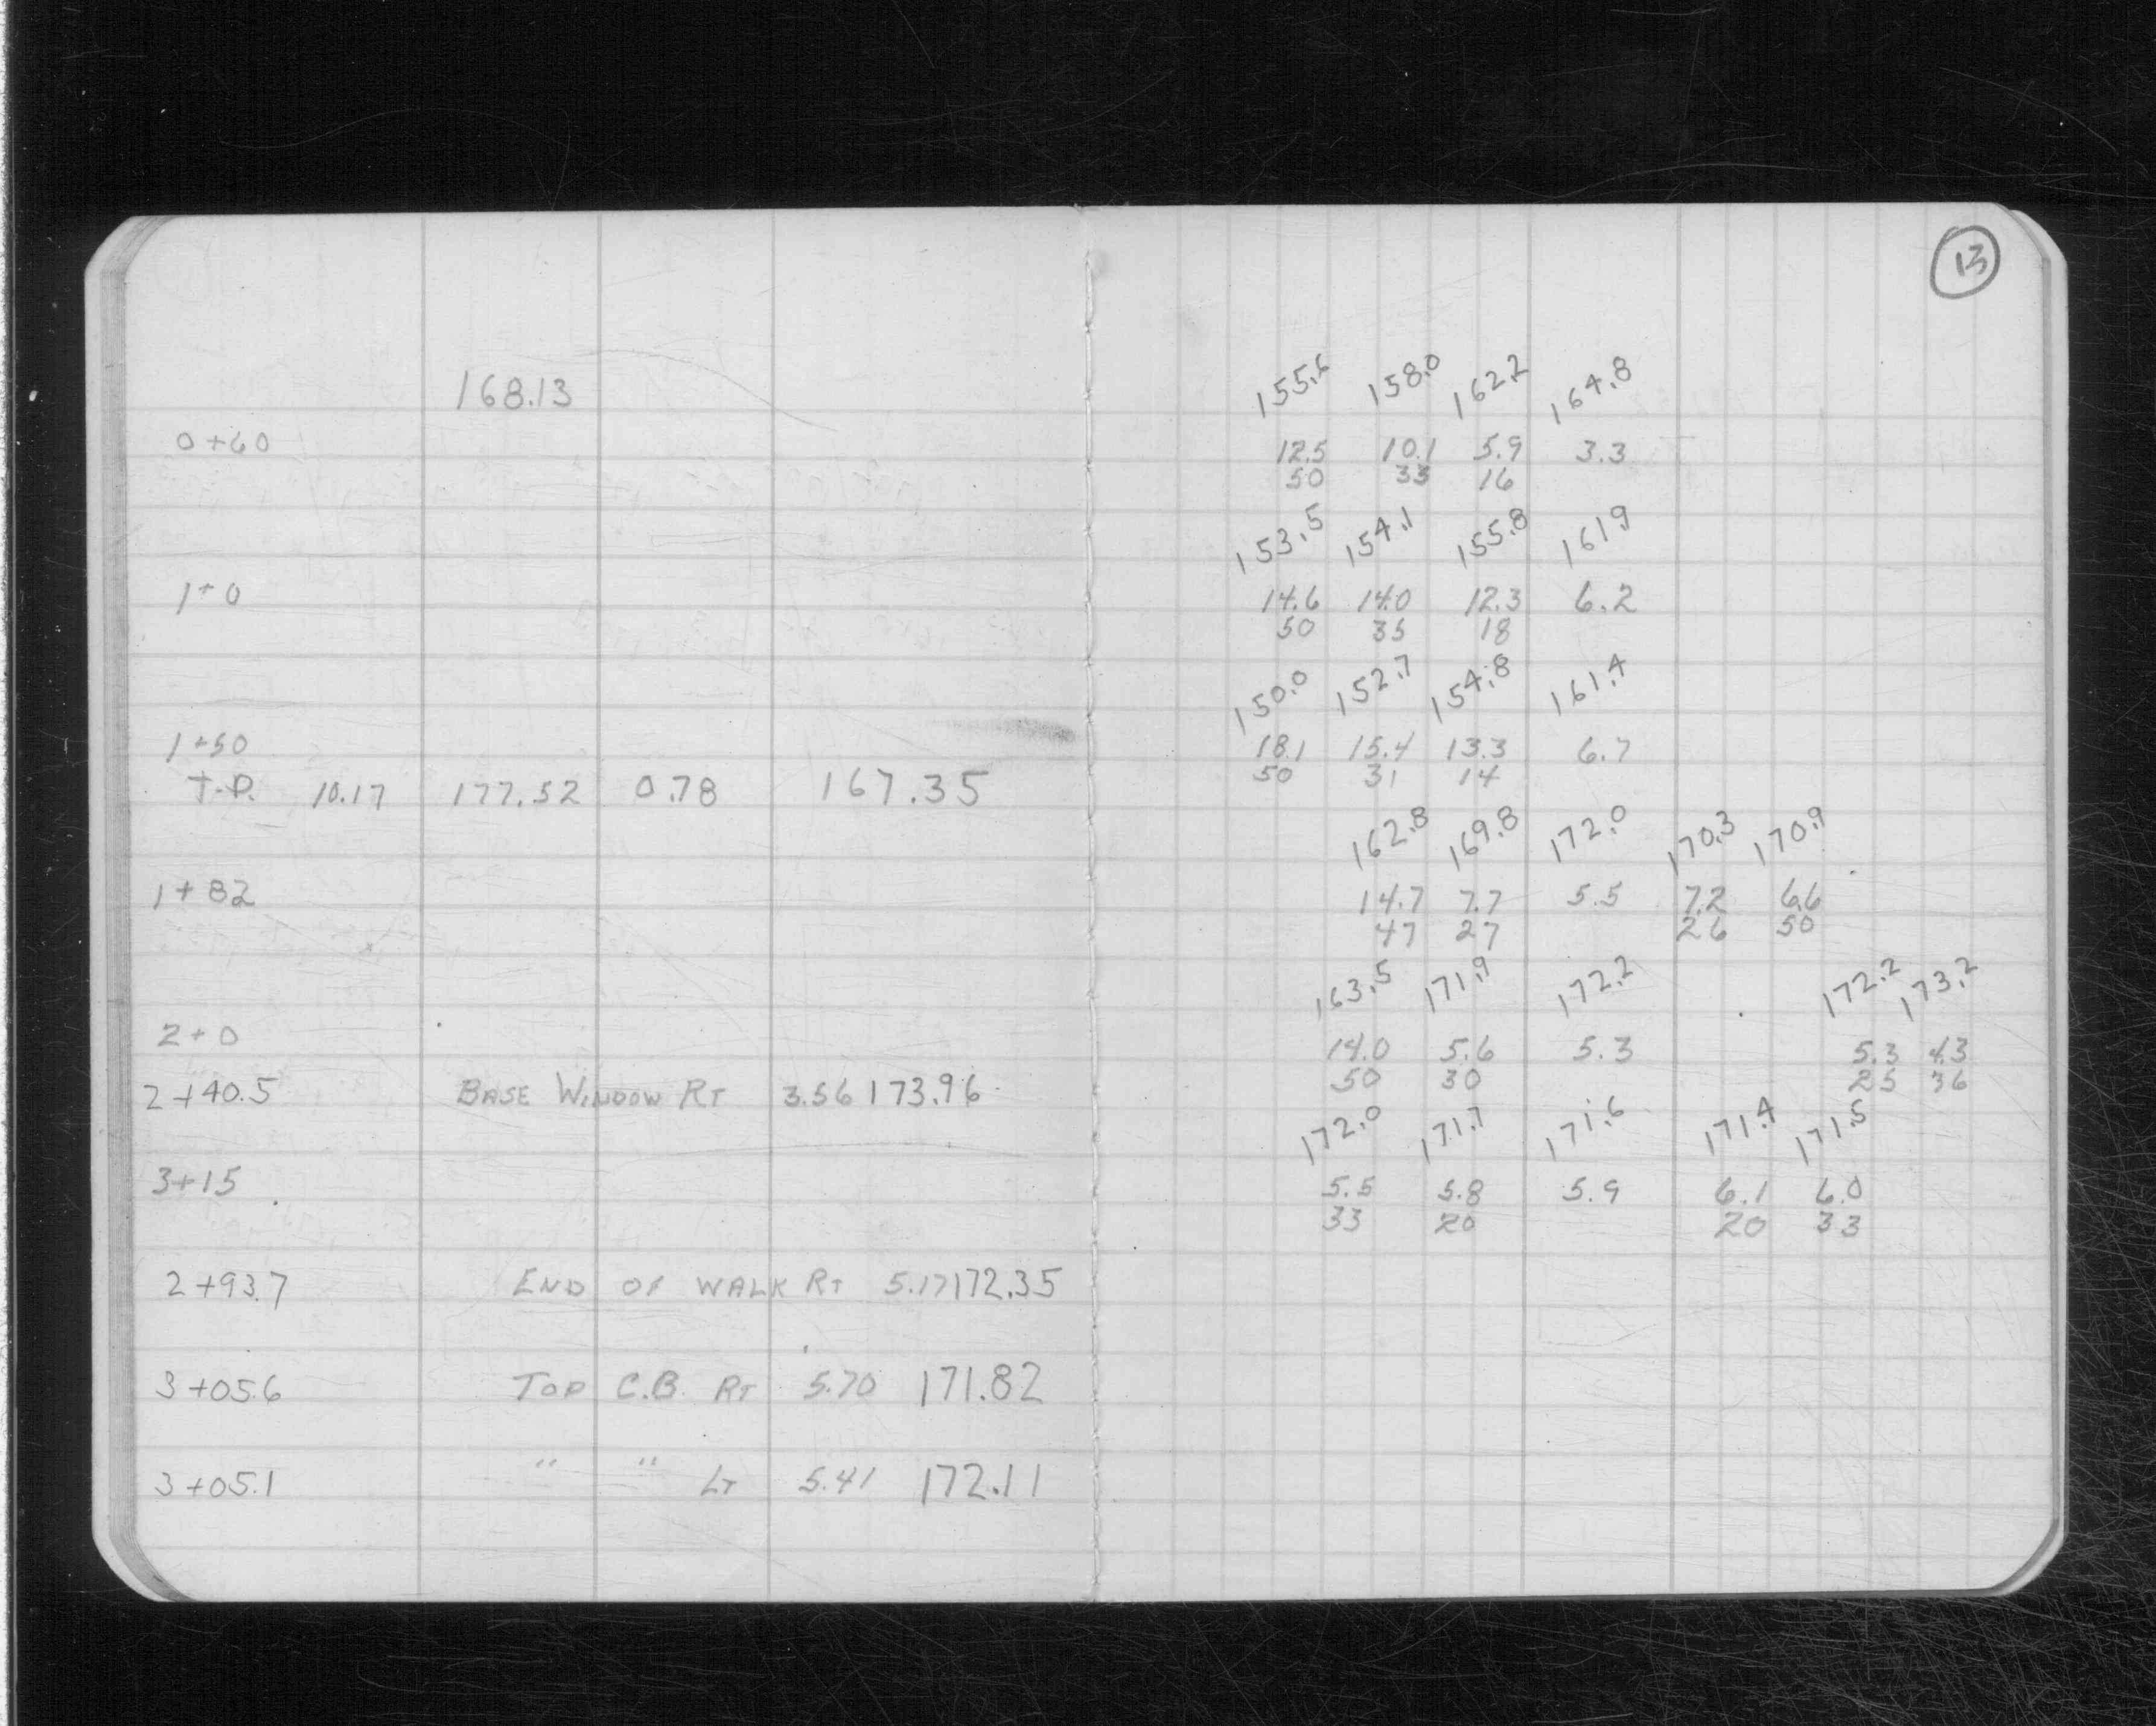 13
168.13
155.6 158.0 162.2 164.8
0+60 12.5 10.1 5.9 3.3
50 33 16
153.5 154.1 155.8 161.9
1+0 14.6 14.0 12.3 6.2
50 35 18
150.0 152.7 154.8 161.4
1+50 18.1 15.4 13.3 6.7
50 31 14
T.P. 10.17 177.52 0.78 167.35
162.8 169.8 172.0 170.3 170.9
1+82 14.7 7.7 5.5 7.2 6.6
47 27 26 50
163.5 171.9 172.2 172.2 173.2
2+0 14.0 5.6 5.3 5.3 4.3
50 30 25 36
2+40.5 BASE WINDOW RT 3.56 173.96
172.0 171.7 171.6 171.4 171.5
3+15 5.5 5.8 5.9 6.1 6.0
33 20 20 33
2+93.7 END OF WALK RT 5.17 172.35
3+05.6 TOP C.B. RT 5.70 171.82
3+05.1 " " LT 5.41 172.11